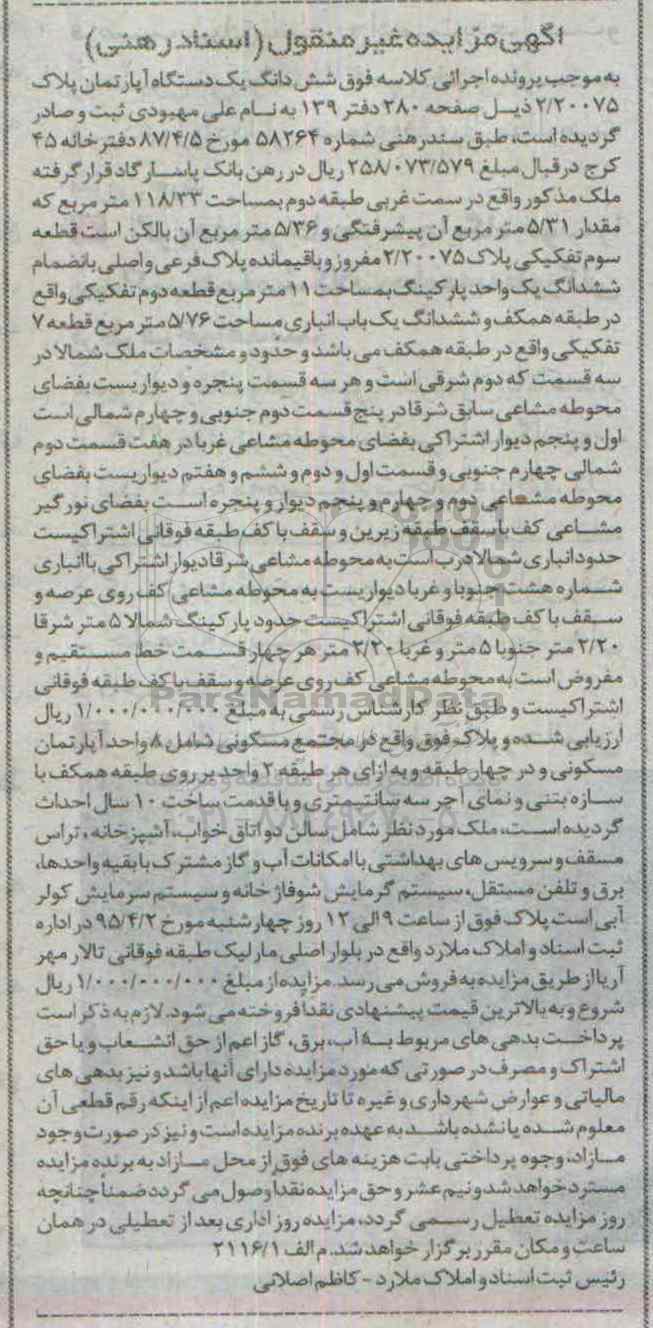 آگهی مزایده غیر منقول (اسناد رهنی)
به موجب پرونده اجرائی کلاسه فوق شش دانگ یک دستگاه آپارتمان پلاک
۲/۲۰۰۷۵ ذیل صفحه ۲۸۰ دفتر ۱۳۹ به نام علی مهبودی ثبت و صادر
گردیده است، طبق سند رهنی شماره ۵۸۲۶۴ مورخ ۸۷/۴/۵ دفترخانه ۴۵
کرج در قبال مبلغ ۲۵۸/۰۷۳/۵۷۹ ریال در رهن بانک پاسارگاد قرار گرفته
ملک مذکور واقع در سمت غربی طبقه دوم بمساحت ۱۱۸/۳۳ متر مربع که
مقدار ۵/۳۱ متر مربع آن پیشرفتگی و ۵/۳۶ متر مربع آن بالکن است قطعه
سوم تفکیکی پلاک ۲/۲۰۰۷۵ مفروز و باقیمانده پلاک فرعی و اصلی بانضمام
ششدانگ یک واحد پارکینگ بمساحت ۱۱ متر مربع قطعه دوم تفکیکی واقع
در طبقه همکف و ششدانگ یک باب انباری مساحت ۵/۷۶ متر مربع قطعه ۷
تفکیکی واقع در طبقه همکف می باشد و حدود و مشخصات ملک شمالا در
سه قسمت که دوم شرقی است و هر سه قسمت پنجره و دیواریست بفضای
محوطه مشاعی سابق شرقا در پنج قسمت دوم جنوبی و چهارم شمالی است
اول و پنجم دیوار اشتراکی بفضای محوطه مشاعی غربا در هفت قسمت دوم
شمالی چهارم جنوبی و قسمت اول و دوم و ششم و هفتم دیواریست بفضای
محوطه مشاعی دوم و چهارم و پنجم دیوار و پنجره است بفضای نورگیر
مشاعی کف با سقف طبقه زیرین و سقف با کف طبقه فوقانی اشتراکیست
حدود انباری شمالا درب است به محوطه مشاعی شرقا دیوار اشتراکی با انباری
شماره هشت جنوبا و غربا دیواریست به محوطه مشاعی کف روی عرصه و
سقف با کف طبقه فوقانی اشتراکیست حدود پارکینگ شمالا ۵ متر شرقا
۲/۲۰ متر جنوبا ۵ متر و غربا ۲/۲۰ متر هر چهار قسمت خط مستقیم و
مفروض است به محوطه مشاعی کف روی عرصه و سقف با کف طبقه فوقانی
اشتراکیست و طبق نظر کارشناس رسمی به مبلغ ۱/۰۰۰/۰۰۰/۰۰۰ ریال
ارزیابی شده و پلاک فوق واقع در مجتمع مسکونی شامل ۸ واحد آپارتمان
مسکونی و در چهار طبقه و به ازای هر طبقه ۲ واحد بر روی طبقه همکف با
سازه بتنی و نمای آجر سه سانتیمتری و با قدمت ساخت ۱۰ سال احداث
گردیده است، ملک مورد نظر شامل سالن دو اتاق خواب، آشپزخانه، تراس
مسقف و سرویس های بهداشتی با امکانات آب و گاز مشترک با بقیه واحدها،
برق و تلفن مستقل، سیستم گرمایش شوفاژخانه و سیستم سرمایش کولر
آبی است پلاک فوق از ساعت ۹ الی ۱۲ روز چهارشنبه مورخ ۹۵/۴/۲ در اداره
ثبت اسناد و املاک ملارد واقع در بلوار اصلی مارلیک طبقه فوقانی تالار مهر
آریا از طریق مزایده به فروش می رسد. مزایده از مبلغ ۱/۰۰۰/۰۰۰/۰۰۰ ریال
شروع و به بالاترین قیمت پیشنهادی نقدا فروخته می شود. لازم به ذکر است
پرداخت بدهی های مربوط به آب، برق، گاز اعم از حق انشعاب و یا حق
اشتراک و مصرف در صورتی که مورد مزایده دارای آنها باشد و نیز بدهی های
مالیاتی و عوارض شهرداری و غیره تا تاریخ مزایده اعم از اینکه رقم قطعی آن
معلوم شده یا نشده باشد به عهده برنده مزایده است و نیز در صورت وجود
مازاد، وجوه پرداختی بابت هزینه های فوق از محل مازاد به برنده مزایده
مسترد خواهد شد و نیم عشر و حق مزایده نقدا وصول می گردد ضمنا چنانچه
روز مزایده تعطیل رسمی گردد، مزایده روز اداری بعد از تعطیلی در همان
ساعت و مکان مقرر برگزار خواهد شد. م الف ۲۱۱۶/۱
رئیس ثبت اسناد و املاک ملارد - کاظم اصلانی
ParsNamadData